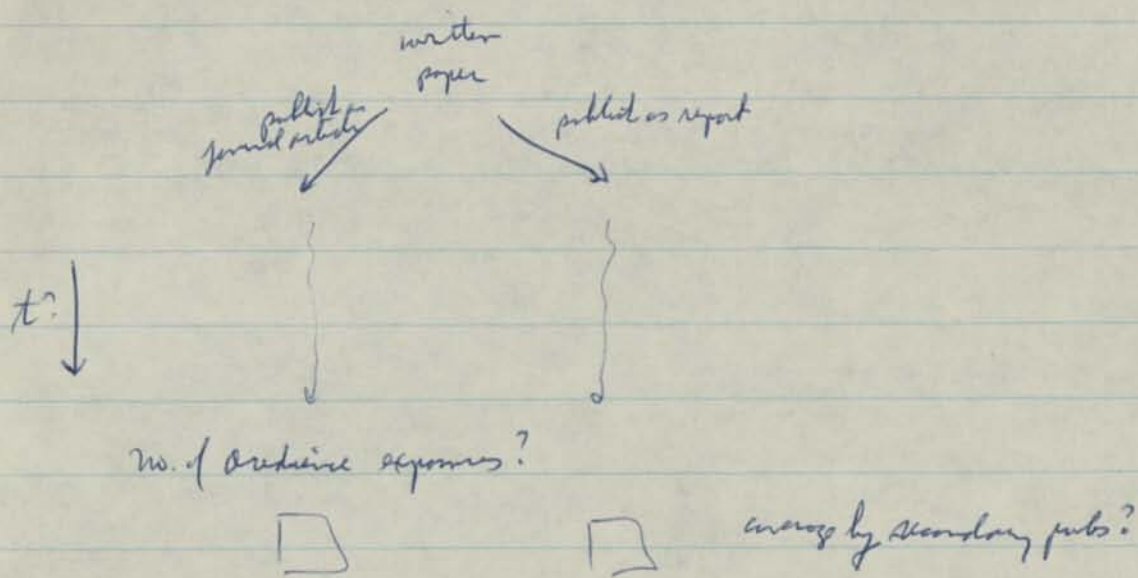 written
paper
publish as
journal article
publish as report
t?
no. of audience exposures?
coverage by secondary pubs?